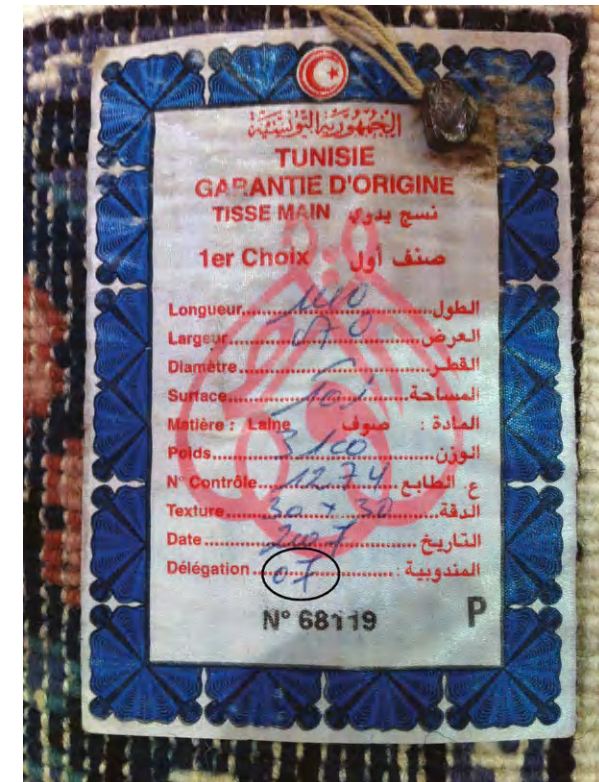 الجمهورية التونسية
TUNISIE
GARANTIE D'ORIGINE
TISSE MAIN نسج يدوي
1er Choix صنف أول
Longueur............140............الطول
Largeur............070............العرض
Diamètre............القطر
Surface............المساحة
Matière : Laine صوف : المادة
Poids............3100............الوزن
N° Contrôle............1274............ع. الطابع
Texture............30 x 30............الدقة
Date............2007............التاريخ
Délégation............07............: المندوبية
N° 68119 P